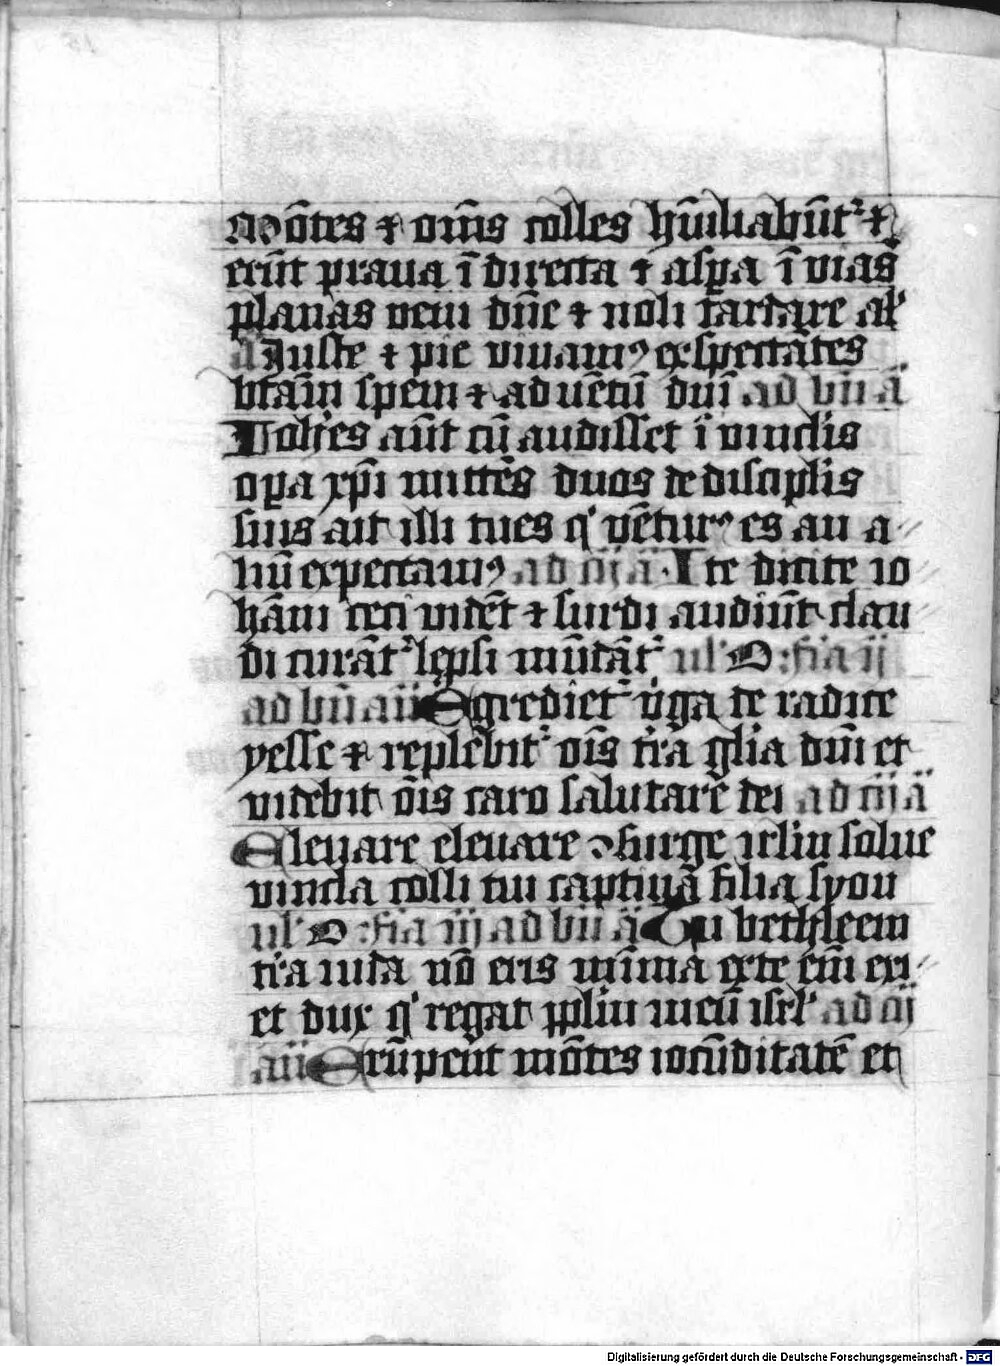 Mōtes ⁊ om̄s colles hūiliabūt᷑ ⁊
erūt praua ī directa ⁊ aspa ī vias
planas veni dn̄e ⁊ noli tardare al'
Juste ⁊ pie viuamꝰ exspectātes
btām spem ⁊ aduētū dn̄i ad bn̄ ā
Joh̄es aūt cū audisset ī vinclis
oꝑa xp̄i mittēs duos de disciplis
suis ait illi tu es q' vētur᷒ es an a
liū expectamꝰ ad m̄ ā Ite dicite io
hāni ceci vidēt ⁊ surdi audiūt clau
di curāt᷑ lepsi mūdāt᷑ ul' O : fia ij
ad bn̄ an̄ Egrediet᷑ v̄ga de radice
yesse ⁊ replebit᷑ oīs tr̄a gl̄ia dn̄i et
videbit ōis caro salutare dei ad m̄ ā
Eleuare eleuare ⁊surge ierlm̄ solue
vincla colli tui captiua filia syon
ul' O : fia iij ad bn̄ ā Tu bethleem
tr̄a iuda nō eris minima ex te em̄ exi
et dux q' regat pplm̄ meū isrl' ad m̄
an̄ Erūpent mōtes iocūditatē et
Digitalisierung gefördert durch die Deutsche Forschungsgemeinschaft - DFG